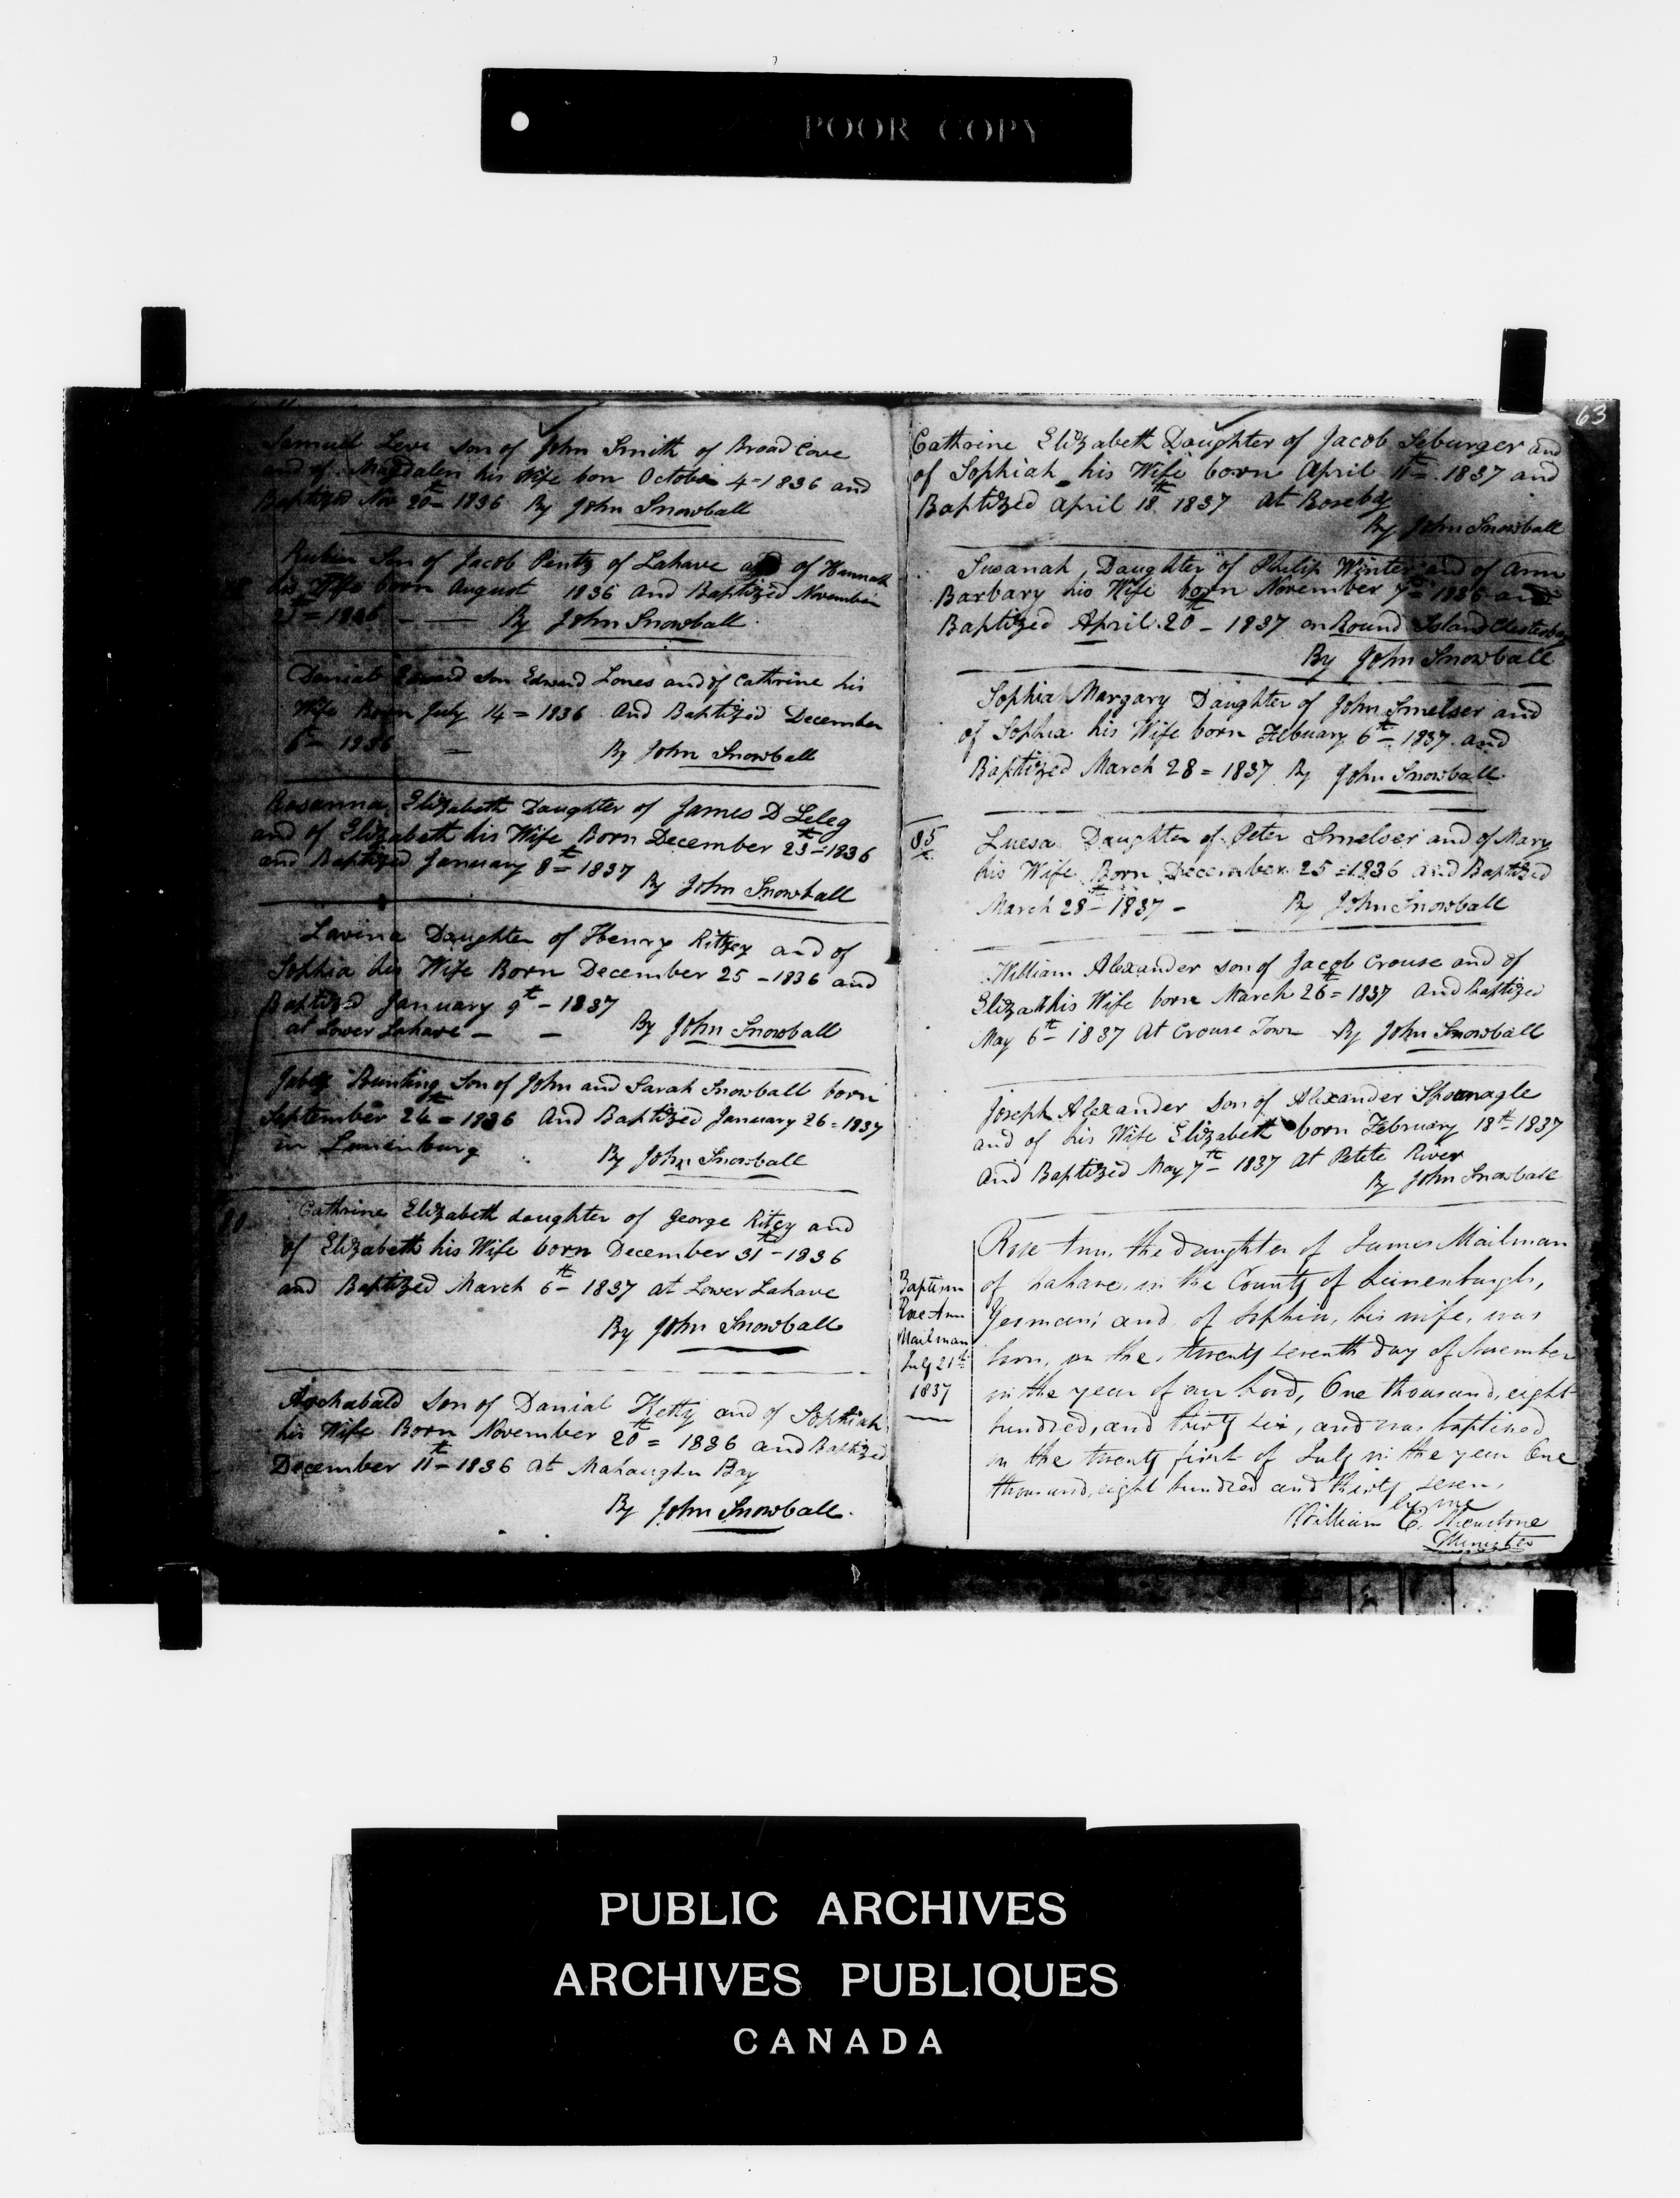 POOR COPY
63
Samuel Levi son of John Smith of Broad Cove
and of Magdalen his Wife born October 4 = 1836 and
Baptized Nov 20th 1836 By John Snowball
Rubin Son of Jacob Pentz of Lahave and of Hannah
his Wife born August 1836 And Baptized November
1836 — By John Snowball
Danial Edward Son Edward Lones and of Cathrine his
Wife Born July 14 = 1836 And Baptized December
6 = 1836 — By John Snowball
Rosanna Elizabeth Daughter of James D Seleg
and of Elizabeth his Wife Born December 23th = 1836
and Baptized January 8th = 1837
By John Snowball
Lavina Daughter of Henry Ritzey and of
Sophia his Wife Born December 25 - 1836 and
Baptized January 9th - 1837
at Lower Lahave — — By John Snowball
Jabez Bunting Son of John and Sarah Snowball born
September 24th = 1836 And Baptized January 26 = 1837
in Lunenburg By John Snowball
80
Cathrine Elizabeth daughter of George Ritcy and
of Elizabeth his Wife born December 31th - 1836
and Baptized March 6th - 1837 at Lower Lahave
By John Snowball
Archabald Son of Danial Ketty and of Sophiah
his Wife Born November 20th = 1836 and Baptized
December 11th - 1836 at Mahaughn Bay
By John Snowball.
Cathrine Elizabeth Daughter of Jacob Seburger and
of Sophiah his Wife born April 11th = 1837 and
Baptized April 18th 1837 at Rosebay
By John Snowball
Susanah Daughter of Philip Winter and of Ann
Barbary his Wife born November 7th = 1836 and
Baptized April 20th - 1837 on Round Island Chesterbay
By John Snowball
Sophia Margary Daughter of John Smelser and
of Sophia his Wife born Febuary 6th - 1837 and
Baptized March 28 = 1837 By John Snowball
85
Luesa Daughter of Peter Smelser and of Mary
his Wife Born December 25 = 1836 and Baptized
March 28th - 1837 - By John Snowball
William Alexander son of Jacob Crouse and of
Elizath his Wife born March 26th = 1837 And Baptized
May 6th - 1837 At Crouse Town By John Snowball
Joseph Alexander Son of Alexander Sponagle
and of his Wife Elizabeth born February 18th - 1837
And Baptized May 7th - 1837 at Petete River
By John Snowball
Baptism
Rose Ann
Mailman
July 21st
1837
Rose Ann, the daughter of James Mailman
of Lahave, in the County of Lunenburgh,
Yeoman; and of Sophia, his wife, was
born, on the, twenty seventh day of November
in the year of our Lord, One thousand, eight
hundred, and thirty six, and was baptized
on the twenty first of July in the year One
thousand, eight hundred and thirty seven,
by me
William E. Shenstone
Minister
PUBLIC ARCHIVES
ARCHIVES PUBLIQUES
CANADA